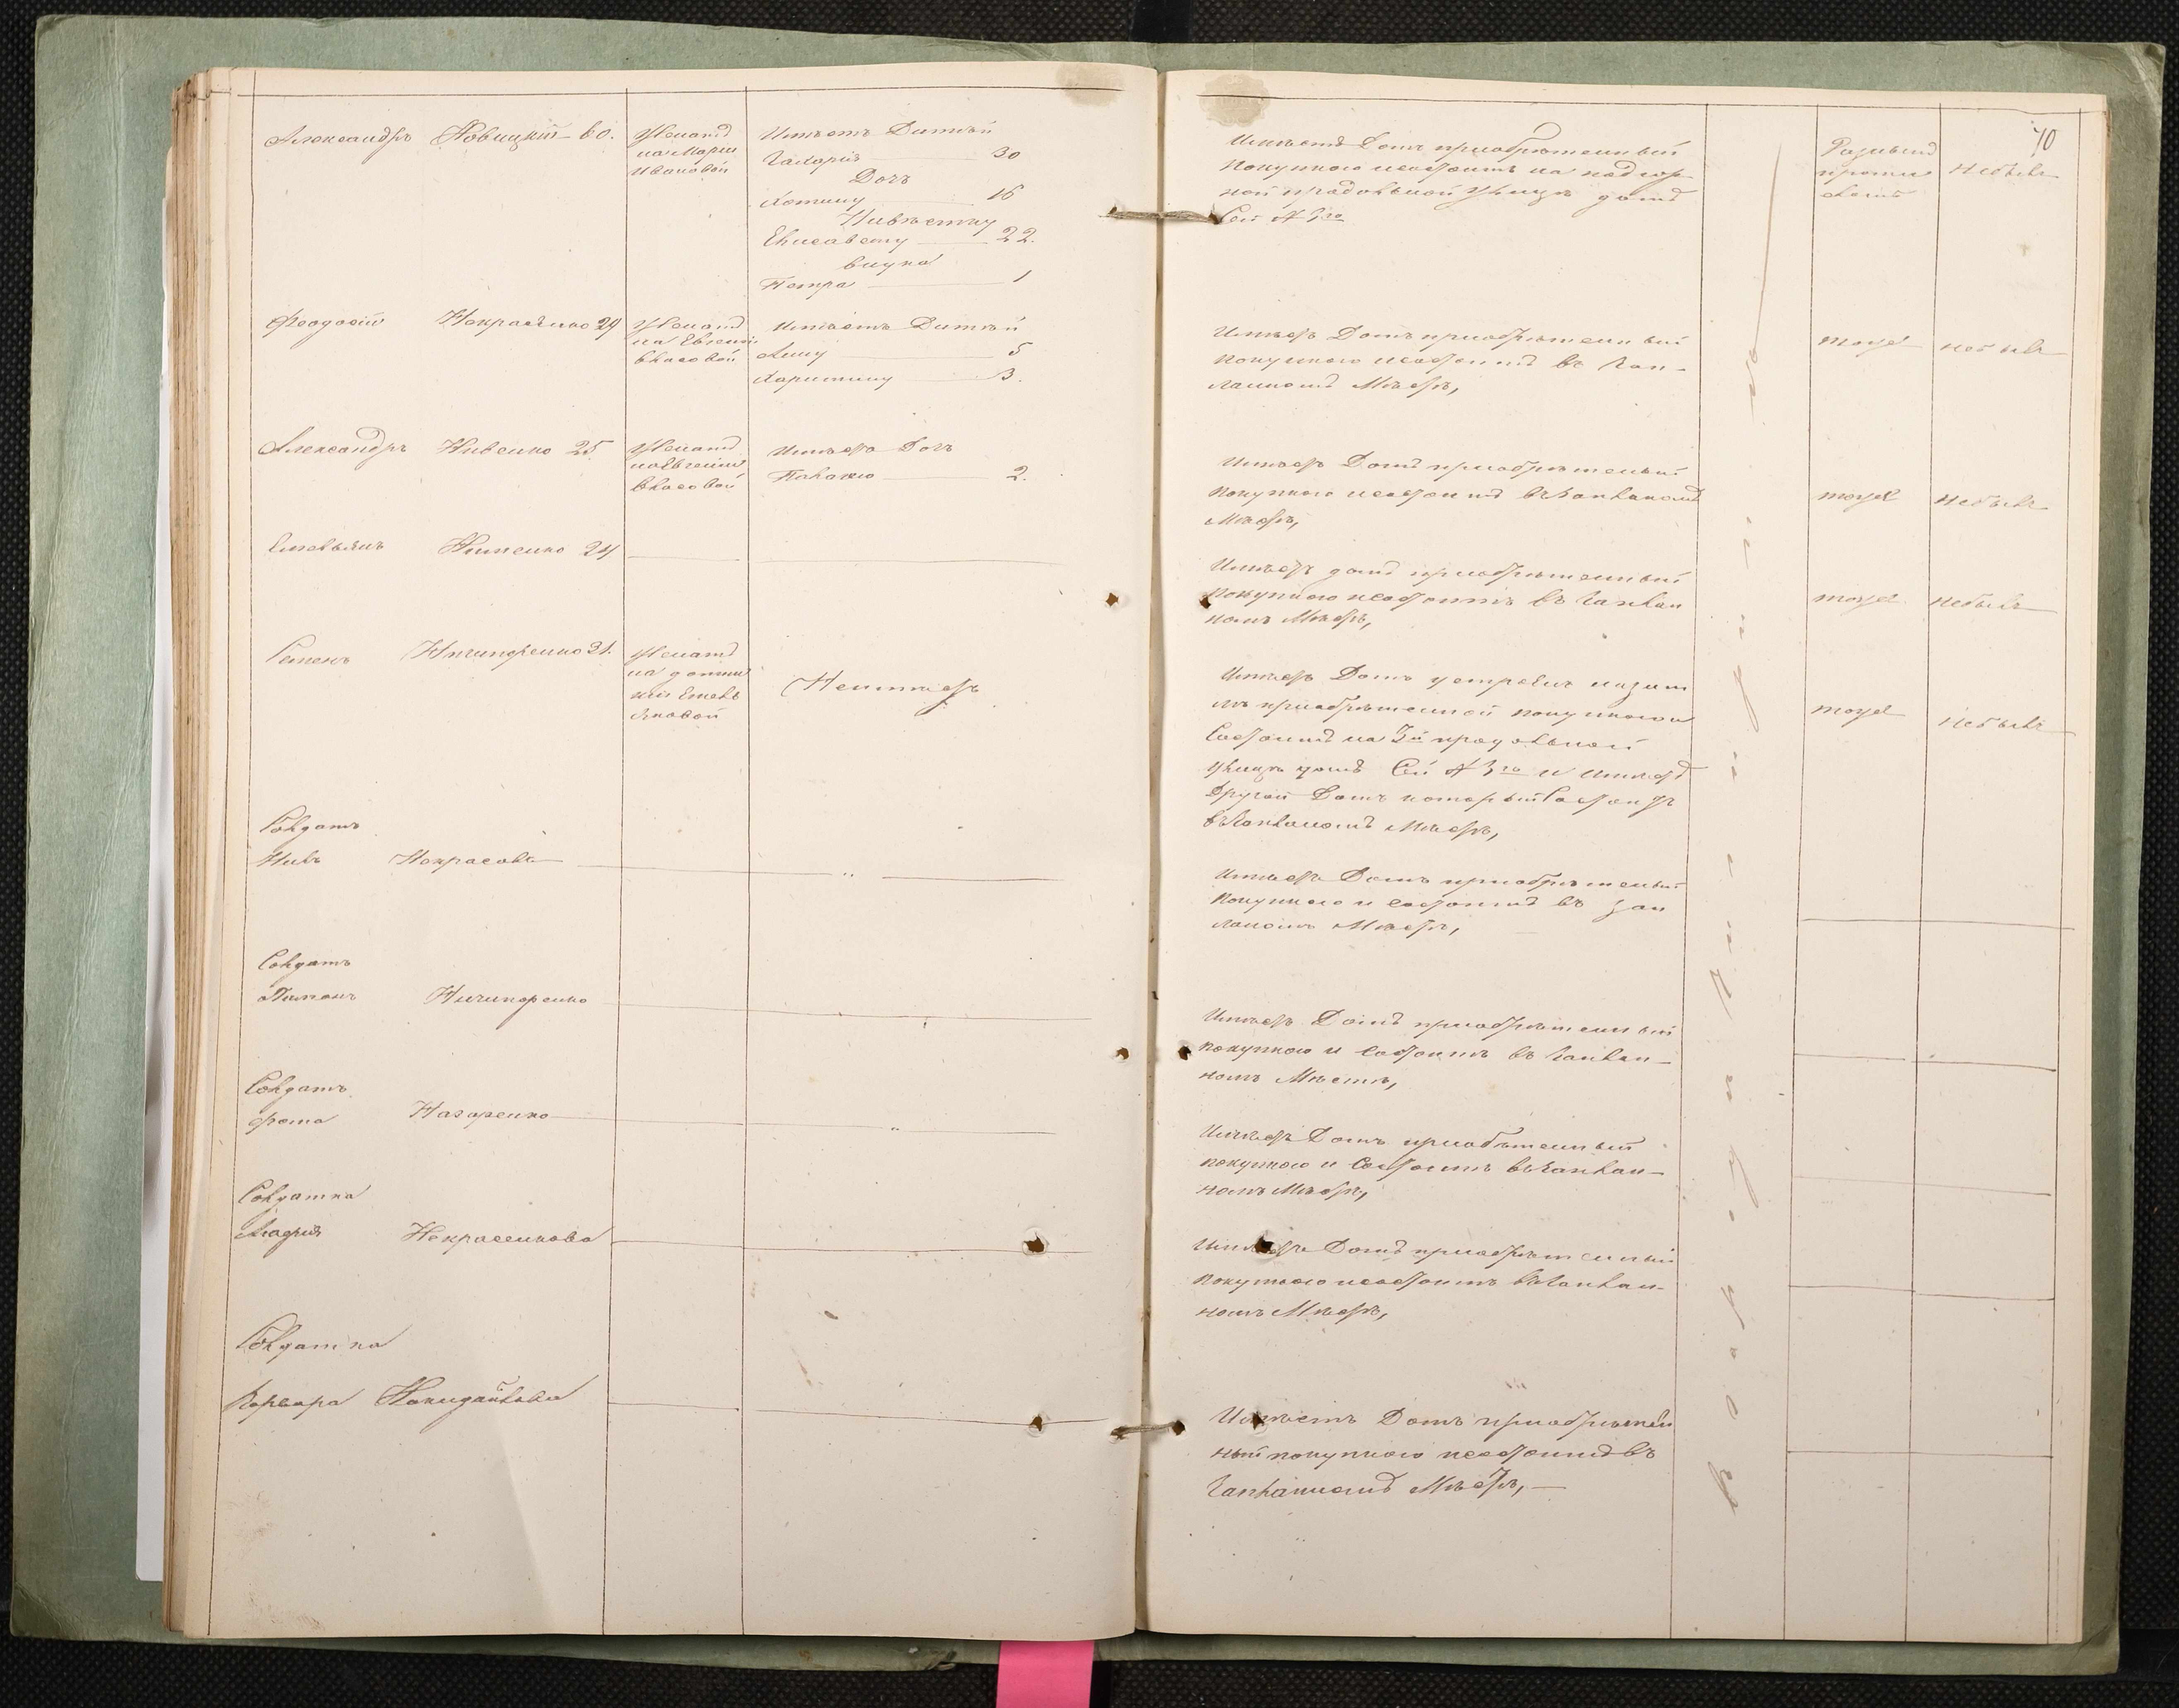 70
Александръ Новицкій 60.
Женатъ
на Маріи
Ивановой
Имѣетъ Дитѣй
Захарія 30
Дочь
Хотину 16
Нивѣстку
Елисавету 22.
внука
Петра 1
Имѣетъ Домъ приобрѣтенный
покупкою исостоитъ на надгор-
ной прадольной улицѣ домъ
Сей № 3го
небылъ
Феодосій Некрасенко 29
Женатъ
на Евгеніи
Власовой
Имѣетъ Дитѣй
Анну 5
Харитину 3.
Имѣетъ Домъ приобрѣтенный
покупкою исостоитъ въ
Мѣстѣ,
тоже небылъ
Александръ Нивенко 25
Женатъ
наЕвгеніи
Власовой
Имѣетъ Дочь
Палажю 2.
Имѣетъ Домъ приобрѣтенный
покупкою исостоитъ
Мѣстѣ,
тоже небылъ
Емельянъ 24
Имѣетъ домъ приобрѣтенный
покупкою исостоитъ въ
номъ Мѣстѣ,
тоже небылъ
Семенъ Ничипоренко 31.
Женатъ
на
Емель
яновой
Неимѣетъ
Имѣетъ Домъ
приобрѣтенной покупкою и
Состоитъ на 3й продольной
улицѣ домъ Сей № 3го и имѣетъ
Другой Домъ который Состоитъ
Мѣстѣ,
тоже небылъ
Солдатъ
Нилъ Некрасовъ
Имѣетъ Домъ приобрѣтеный
покупкою и состоитъ въ
Мѣстѣ,
Солдатъ
Ничипоренко
Имѣетъ Домъ приобрѣтенный
покупкою и Состоитъ въ
номъ Мѣстѣ,
Солдатъ
Фома Назаренко
Имѣетъ Домъ приобѣтенный
покупкою и Состоитъ
номъ Мѣстѣ,
Солдатка
Агафія Некрасенкова
Имѣетъ Домъ приобрѣтенный
покупкою исостоитъ
номъ Мѣстѣ,
Солдатка
Имѣетъ Домъ приобрѣтен
ный покупкою исостоитъ въ
Мѣстѣ,